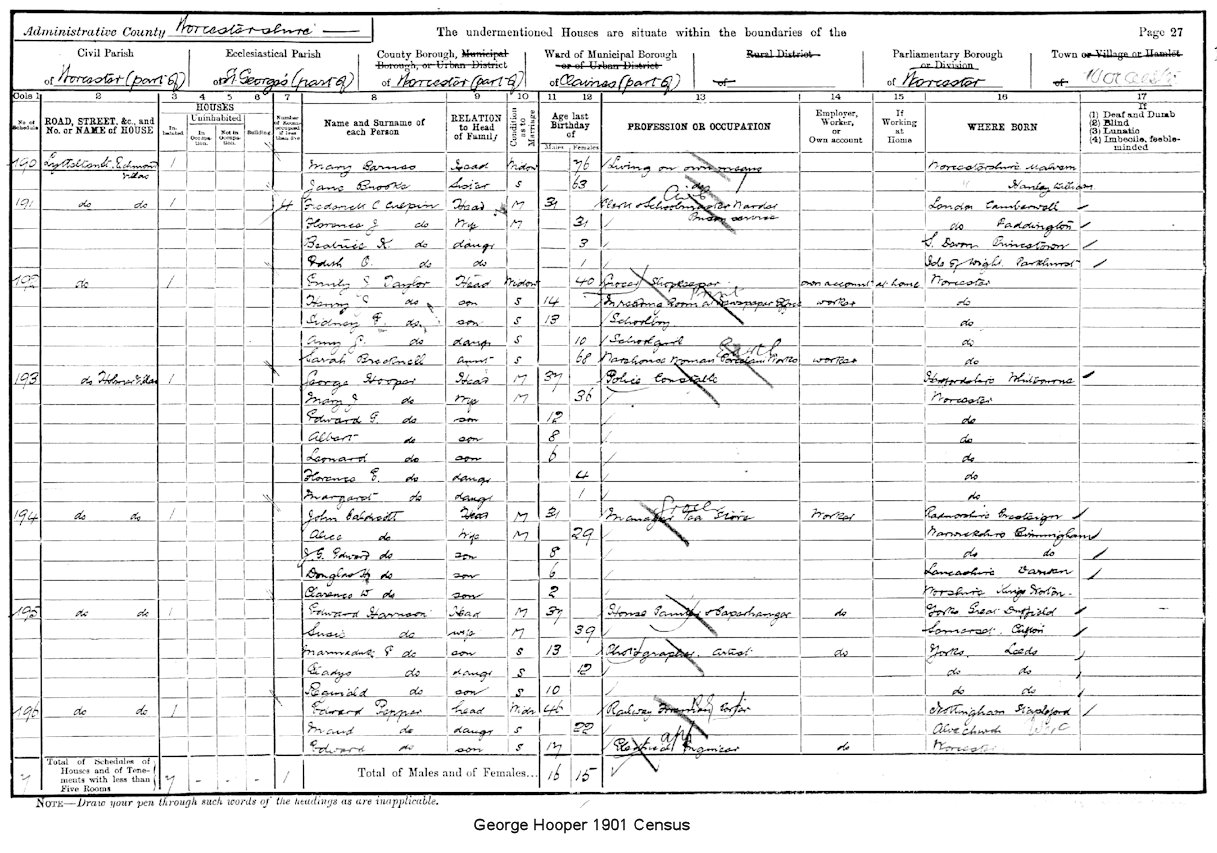 Administrative County Worcestershire The undermentioned Houses are situate within the boundaries of the Page 27
Civil Parish Ecclesiastical Parish County Borough, Municipal Borough, or Urban District Ward of Municipal Borough or of Urban District Rural District Parliamentary Borough or Division Town or Village or Hamlet
of Worcester (part of) of St Georges (part of) of Worcester (part of) of Claines (part of) of of Worcester of Worcester
Cols 1 2 3 4 5 6 7 8 9 10 11 12 13 14 15 16 17
No. of Schedule ROAD, STREET, &c., and No. or NAME of HOUSE HOUSES Inhabited Uninhabited In Occupation. Not in Occupation. Building Number of Rooms occupied if less than five Name and Surname of each Person RELATION to Head of Family Condition as to Marriage Age last Birthday of Males Females PROFESSION OR OCCUPATION Employer, Worker, or Own account If Working at Home WHERE BORN If (1) Deaf and Dumb (2) Blind (3) Lunatic (4) Imbecile, feeble-minded
190 1 Mary Head Widow 76 Living on own means Worcestershire Malvern
Jane Brooks Sister S 63 do Hanley William
191 do do 1 4 Frederick C Head M 31 Clerk & Schoolmaster Warder Prison service London Camberwell
Florence J do Wife M 31 do Paddington
Beatrice K do daugr 3 S. Devon Princetown
Edith do do 1 Isle of Wight Parkhurst
192 do 1 Emily Taylor Head Widow 40 Grocer Shopkeeper own account at home Worcester
Henry do son S 14 In reading Room at Newspaper Office worker do
Sidney F. do son S 13 Schoolboy do
Amy do daugr S 10 Schoolgirl do
Sarah Brecknell aunt S 68 Warehouse Woman Porcelain Works worker do
193 do 1 George Hooper Head M 37 Police Constable Herefordshire Whitbourne
Mary J do Wife M 36 Worcester
Edward G. do son 12 do
Albert do son 8 do
Leonard do son 6 do
Florence E. do daugr 4 do
Margaret do daugr 1 do
194 do do 1 John Head M 31 Manager Tea Store Worker Radnorshire Presteign
Alice do Wife M 29 Warwickshire Birmingham
J. G. Edward do son 8 do do
Douglas H do son 6 Lancashire Darwen
Clarence W do son 2 Worshire Kings Norton
195 do do 1 Edward Harrison Head M 37 House Painter & Paperhanger do Yorks Great Driffield
Susie do wife M 39 Somerset Clifton
Marmaduke do son S 13 Photographer artist do Yorks. Leeds
Gladys do daugr S 12 do do
Reginald do son S 10 do do
196 do do 1 Edward Pepper head Widr 46 Railway Porter Nottingham Stapleford
Maud do daugr S 22 Alvechurch
Edward do son S 17 app Electrical Engineer do Worcester
7 Total of Schedules of Houses and of Tenements with less than Five Rooms 7 - - - 1 Total of Males and of Females... 16 15
NOTE—Draw your pen through such words of the headings as are inapplicable.
George Hooper 1901 Census